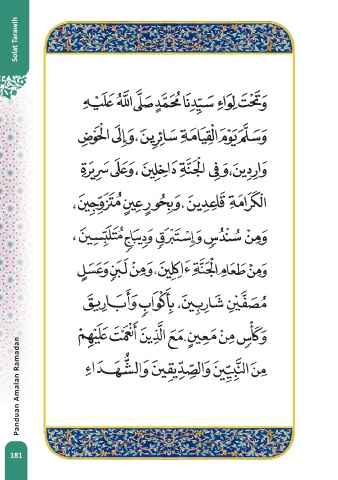 Solat Tarawih
وَتَحْتَ لِوَاءِ سَيِّدِنَا مُحَمَّدٍ صَلَّى اللَّهُ عَلَيْهِ
وَسَلَّمَ يَوْمَ الْقِيَامَةِ سَائِرِينَ، وَإِلَى الْحَوْضِ
وَارِدِينَ، وَفِي الْجَنَّةِ دَاخِلِينَ، وَعَلَى سَرِيرَةِ
الْكَرَامَةِ قَاعِدِينَ، وَبِحُورٍ عِينٍ مُتَزَوِّجِينَ،
وَمِنْ سُنْدُسٍ وَإِسْتَبْرَقٍ وَدِيبَاجٍ مُتَلَبِّسِينَ،
وَمِنْ طَعَامِ الْجَنَّةِ ءَاكِلِينَ، وَمِنْ لَبَنٍ وَعَسَلٍ
مُصَفَّيْنِ شَارِبِينَ، بِأَكْوَابٍ وَأَبَارِيقَ
وَكَأْسٍ مِنْ مَعِينٍ، مَعَ الَّذِينَ أَنْعَمْتَ عَلَيْهِمْ
مِنَ النَّبِيِّينَ وَالصِّدِّيقِينَ وَالشُّهَدَاءِ
Panduan Amalan Ramadan
181